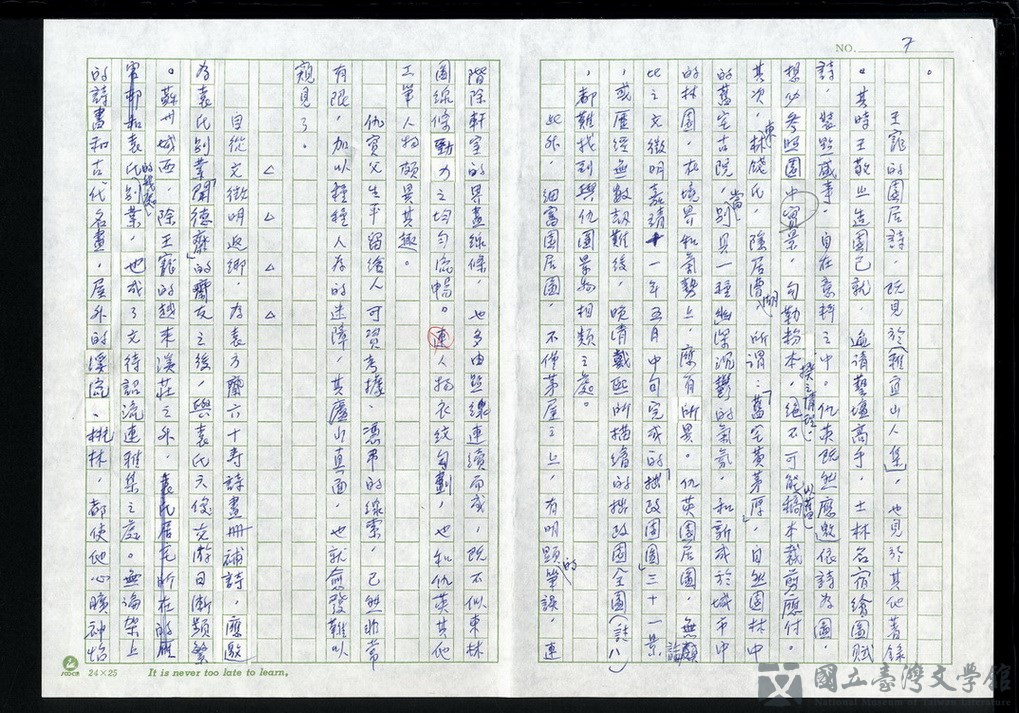 NO. 7
。
王寵的園居詩,既見於「雅宜山人集」,也見於其他著錄
。其時王敬止造園已就,遍請藝壇高手,士林名宿繪圖賦
詩,裝點盛事,自在意料之中。仇英既然應邀依詩為圖,
想必參照園中實景,勾勒粉本,揆之情理,絕不可能以舊稿本裁剪應付。
其次,東林錢氏,隱居漕湖,所謂:「舊宅黃茅厚」,自然園林中
的舊宅古院,當別具一種幽深沉鬱的氣氛,和新成於城市中
的林園,在境界和氣勢上,應有所異。仇英園居圖,無論
比之文徵明嘉靖十一年五月中旬完成的「拙政園圖」三十一景
,或歷經無數劫難後,晚清戴熙所描繪的拙政園全圖(註八)
,都難找到與仇圖景物相類之處。
此外,細審園居圖,不僅茅屋之上,有明顯的筆誤,連
階除軒室的界畫線條,也多由點線連續而成,既不似東林
圖線條勁力之均勻流暢。連人物衣紋勾劃,也和仇英其他
工筆人物頗異其趣。
仇實父生平留給人可資考據、憑弔的線索,已然非常
有限,加以種種人為的迷障,其廬山真面,也就愈發難以
窺見了。
△ △ △ △
自從文徵明返鄉,為袁方齋六十壽詩畫冊補詩,應邀
為袁氏別業「聞德齋」的齋友之後,與袁氏六俊交游日漸頻繁
。蘇州城西,除王寵的越來溪莊之外,
袁氏的幾處別業,也成了文待詔流連雅集之處。無論架上
的詩書和古代名畫,屋外的溪流、桃林,都使他心曠神怡
24×25 It is never too late to learn.
國立臺灣文學館
National Museum of Taiwan Literature